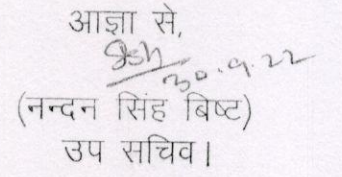 आज्ञा से,
30.9.22
(नन्दन सिंह बिष्ट)
उप सचिव।